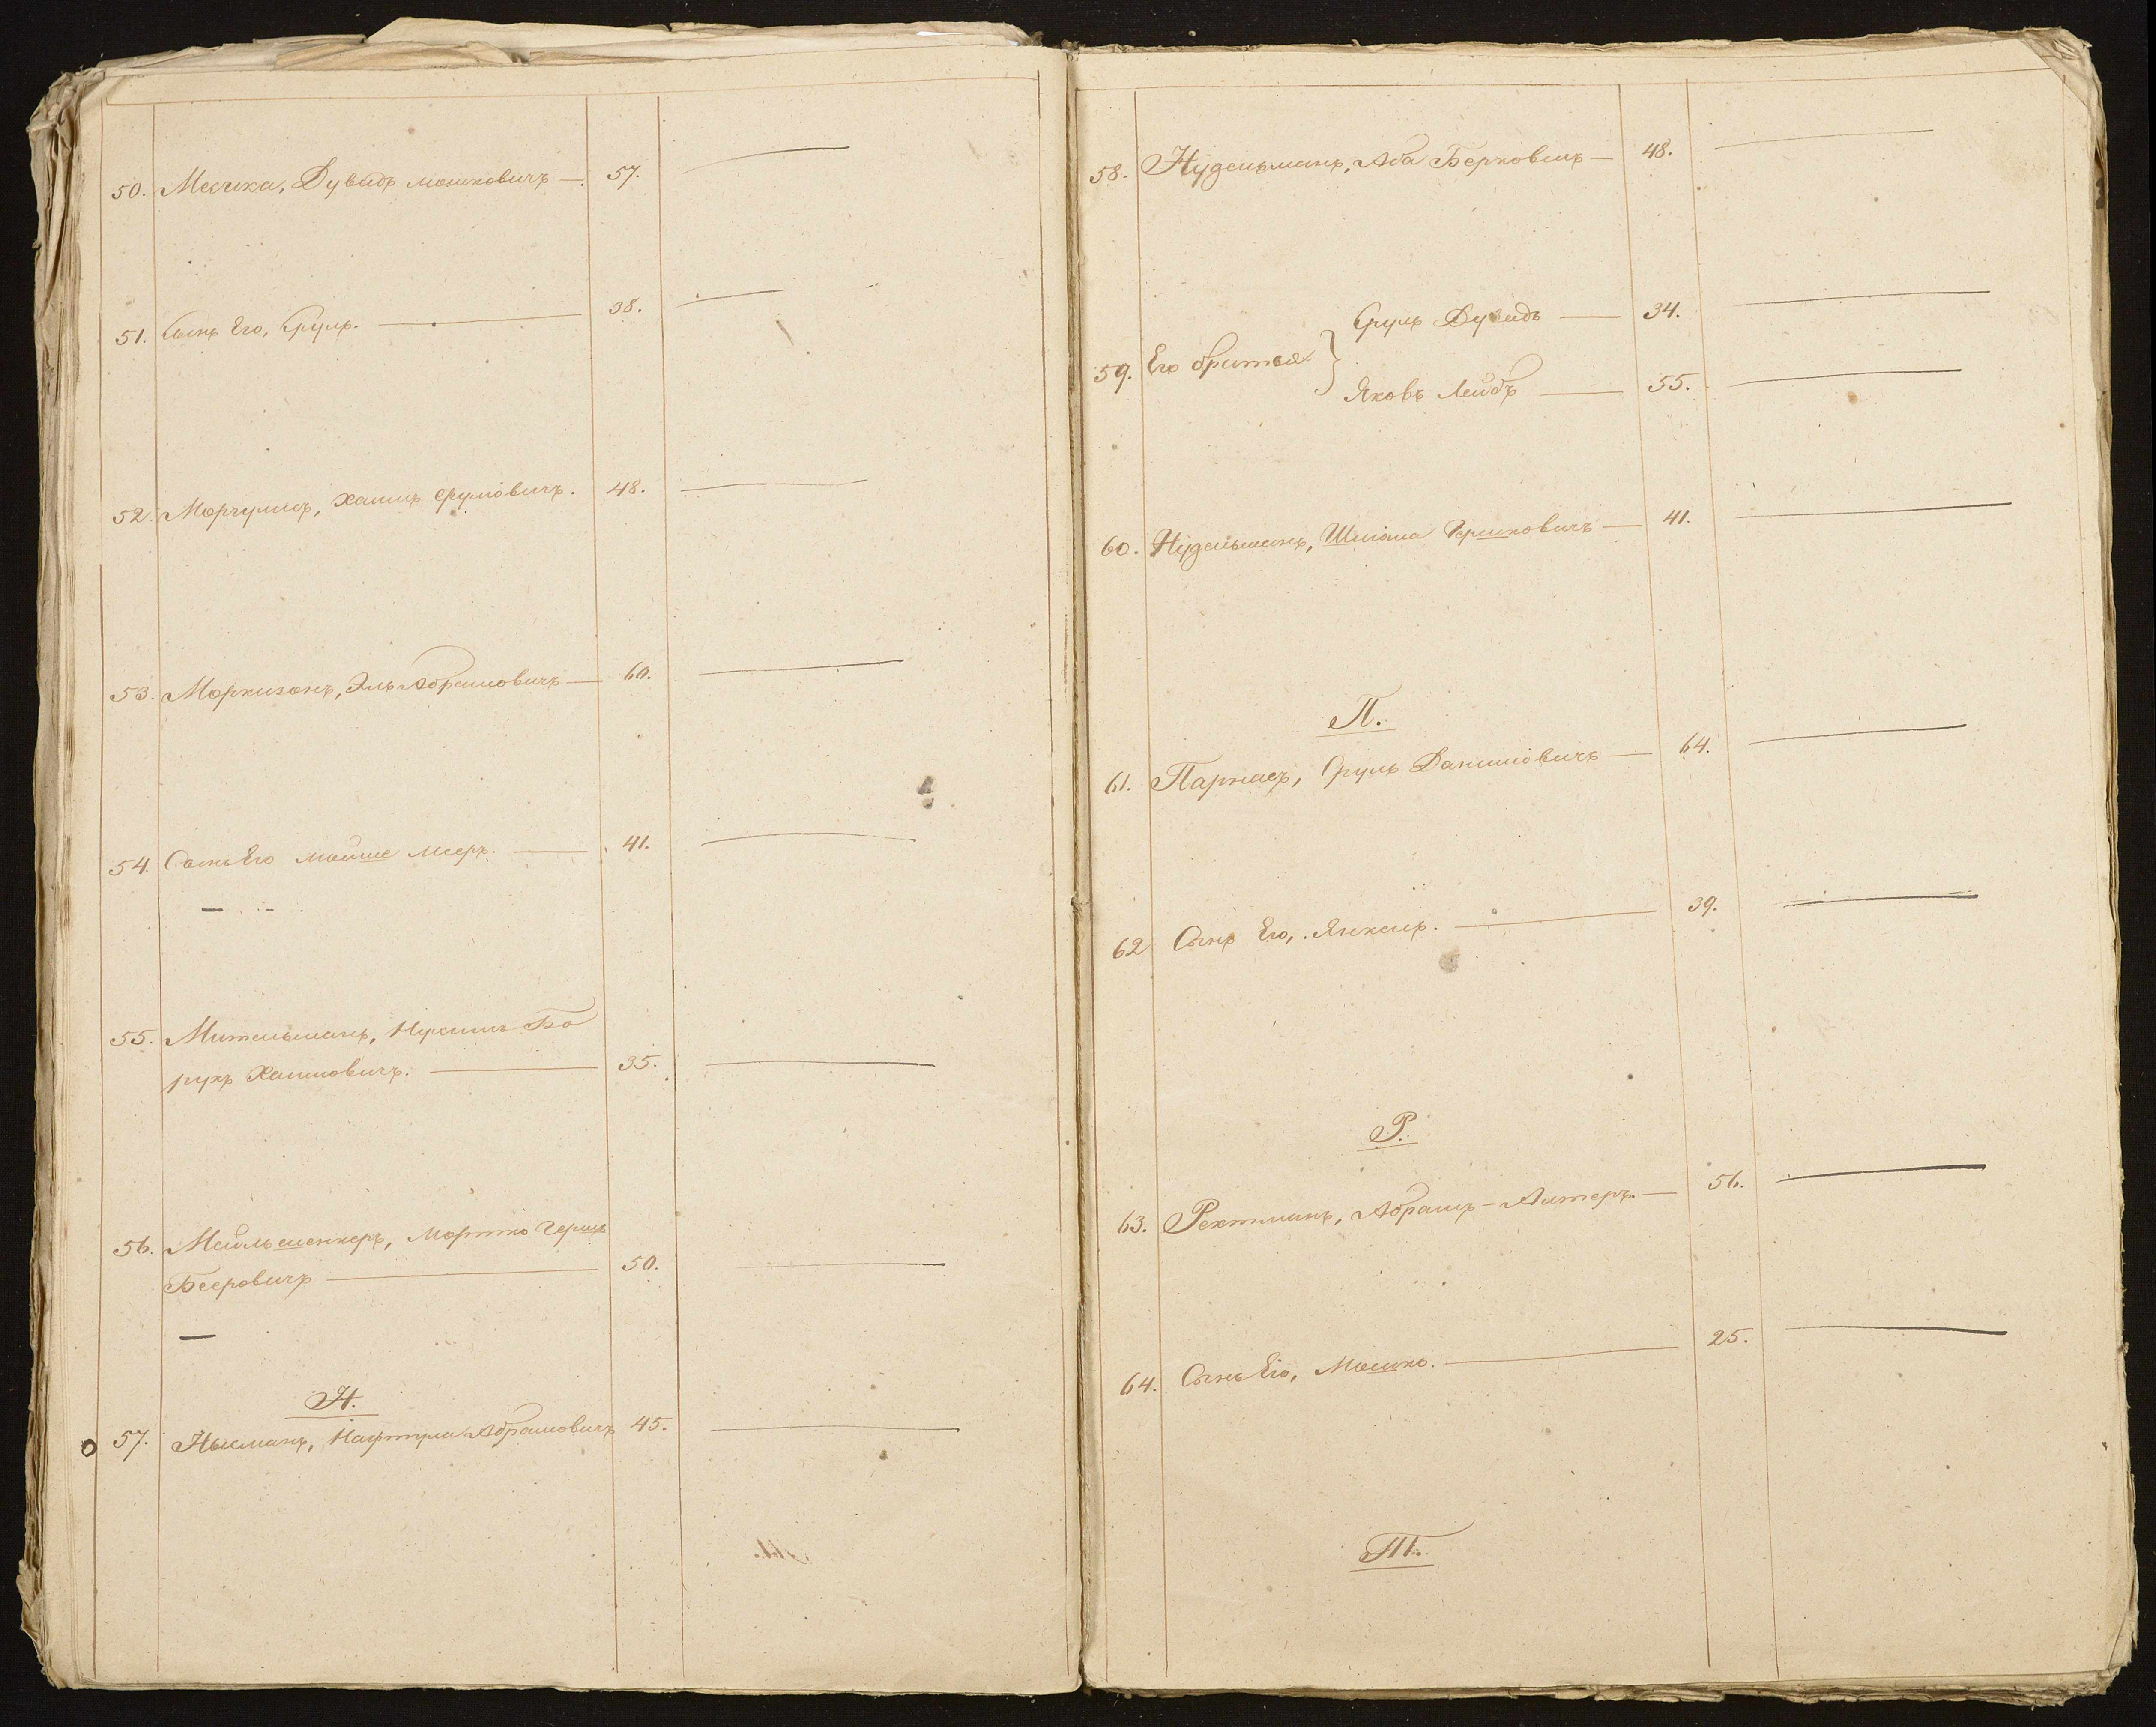 50. Месчка, Дувидъ Мошковичъ — 57.
51. Сынъ Его, Сруль. — 38.
52. Моргулисъ, Хаимъ Срулiовичъ. 48.
53. Моркизонъ, Эль Абрамовичъ — 60.
54. Сынъ Его Мойше Мееръ. — 41.
55. Мительманъ, Нухимъ Бо
рухъ Хаимовичъ. — 35.
56. Мейльсшенкеръ, Мортко Гершъ
Бееровичъ — 50.
Н.
57. Ныкманъ, Нафтула Абрамовичъ 45.
58. Нудельманъ, Аба Берковичъ — 48.
Сруль Дувидъ — 34.
59. Его братья }
Яковъ Лейбъ — 55.
60. Нудельманъ, Шлiома Гершковичъ — 41.
П.
61. Парнасъ, Сруль Данилiовичъ — 64.
62 Сынъ Его, Янкель. — 39.
Р.
63. Рехтманъ, Абрамъ-Алтеръ. — 56.
64. Сынъ Его, Мошко. — 25.
Т.